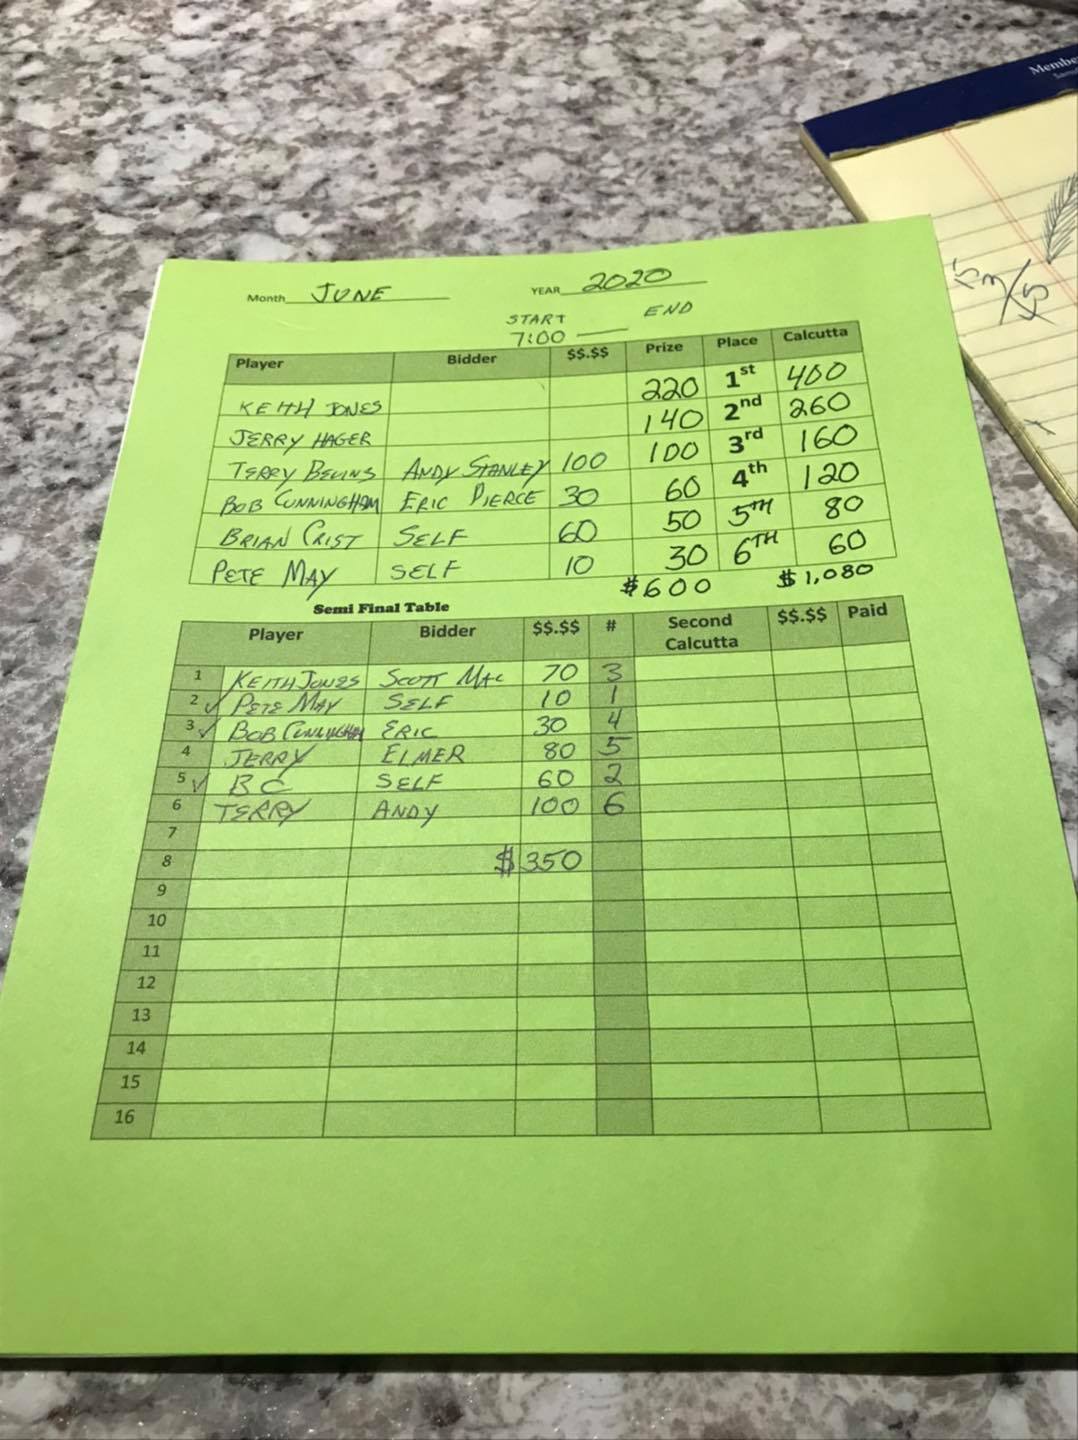 Membe
Month JUNE YEAR 2020
START END
7:00
Player Bidder $$.$$ Prize Place Calcutta
KEITH JONES 220 1st 400
JERRY HAGER 140 2nd 260
TERRY BEVINS ANDY STANLEY 100 100 3rd 160
BOB CUNNINGHAM ERIC PIERCE 30 60 4th 120
BRIAN CRIST SELF 60 50 5TH 80
PETE MAY SELF 10 30 6TH 60
$600 $1,080
Semi Final Table
Player Bidder $$.$$ # Second Calcutta $$.$$ Paid
1 KEITH JONES SCOTT MAC 70 3
2 ✓ PETE MAY SELF 10 1
3 ✓ BOB CUNNINGHAM ERIC 30 4
4 JERRY ELMER 80 5
5 ✓ BC SELF 60 2
6 TERRY ANDY 100 6
7
8 $350
9
10
11
12
13
14
15
16